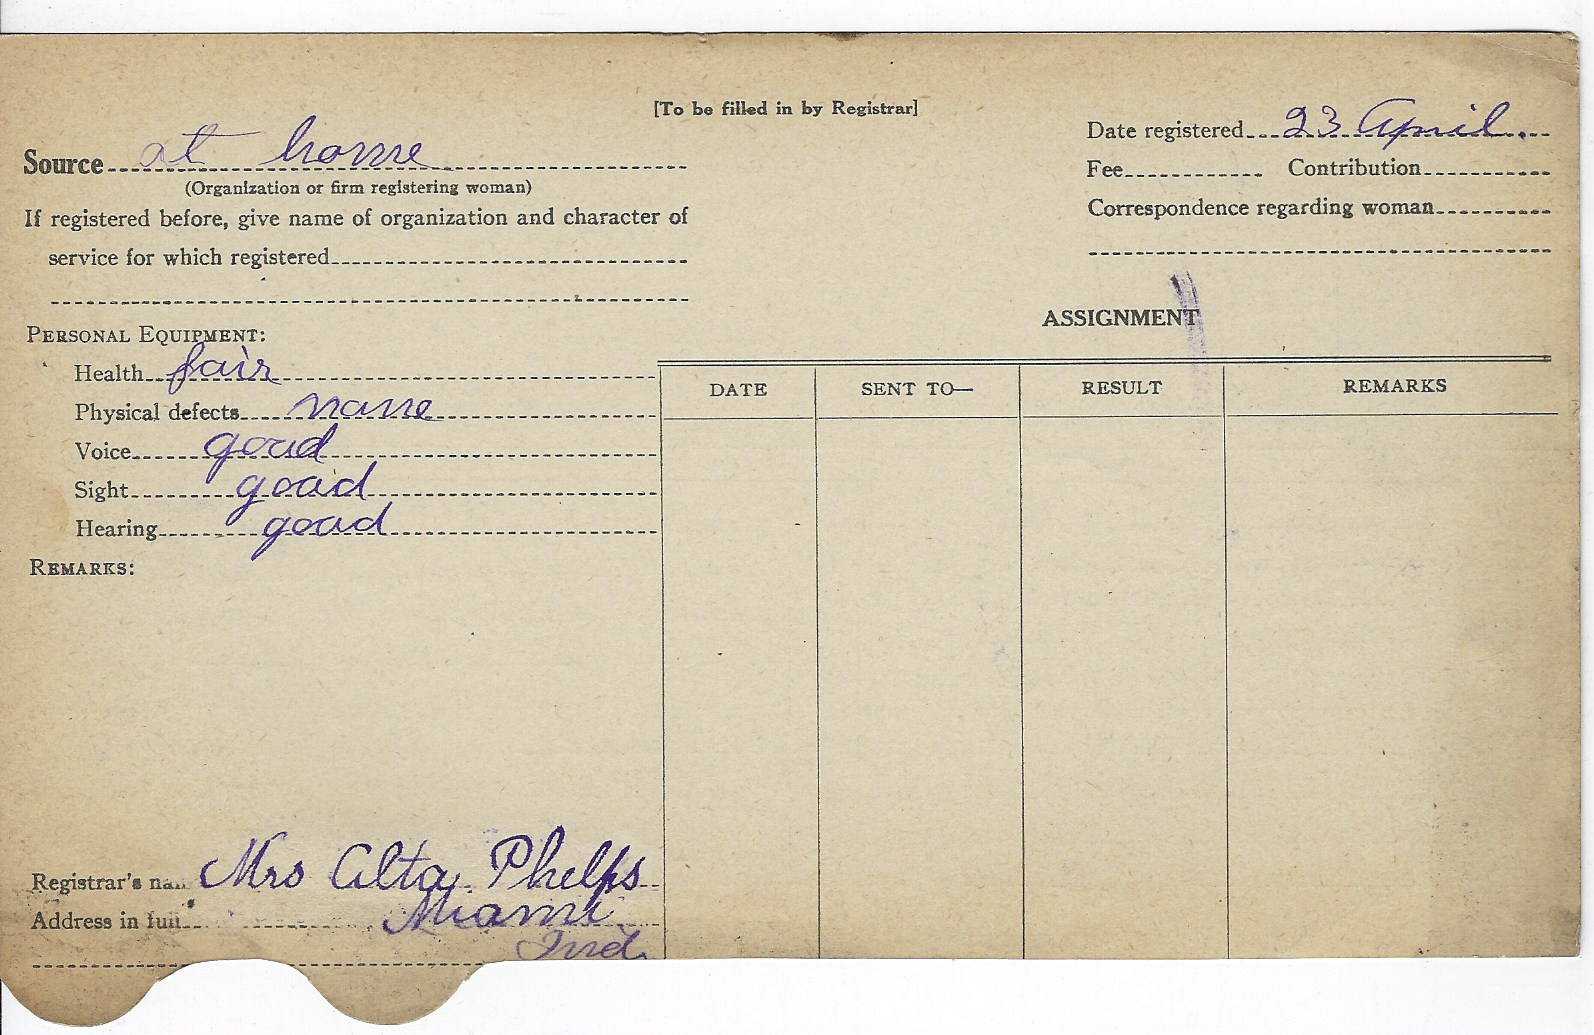 [To be filled in by Registrar]
Source at home
(Organization or firm registering woman)
If registered before, give name of organization and character of
service for which registered
Date registered 23 April.
Fee Contribution
Correspondence regarding woman
PERSONAL EQUIPMENT:
Health fair
Physical defects none
Voice good
Sight good
Hearing good
REMARKS:
Registrar's na Mrs Alta Phelps
Address in full Miami
Ind.
ASSIGNMENT
DATE SENT TO— RESULT REMARKS